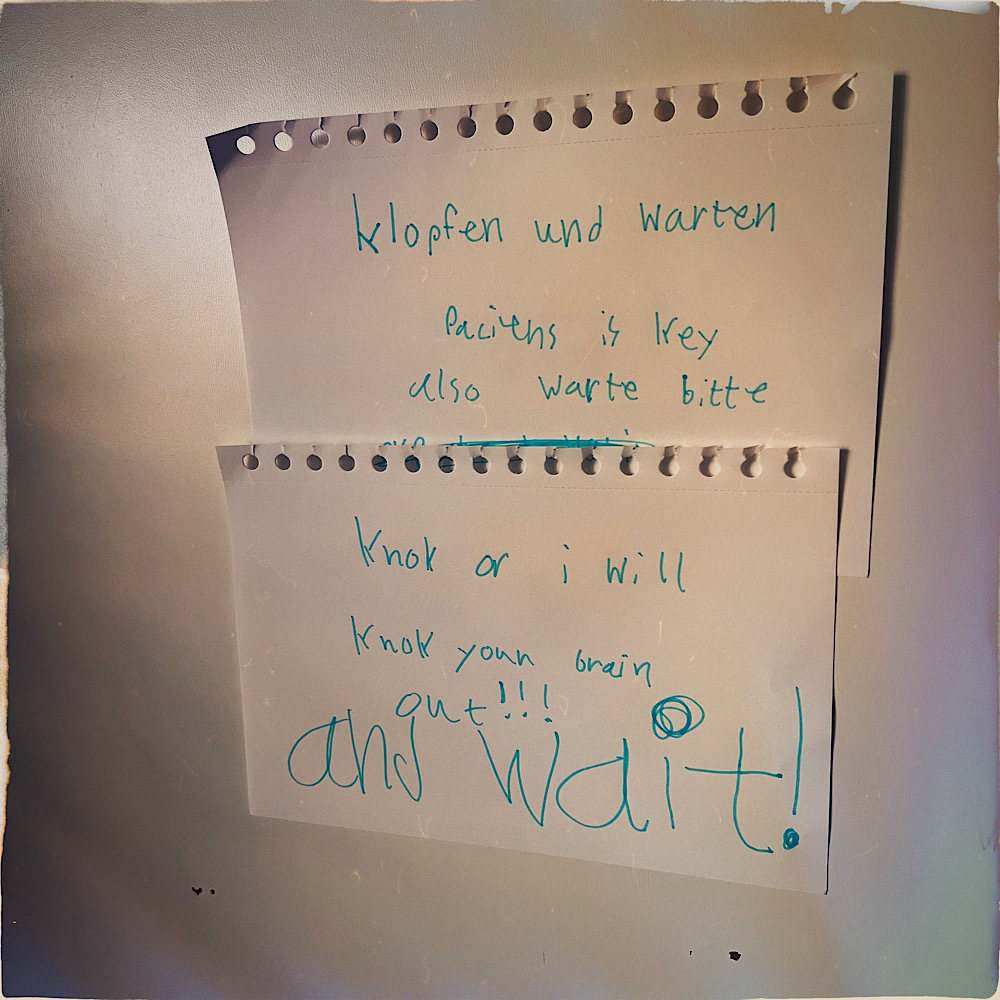 klopfen und warten
Paciens is key
also warte bitte
Knok or i will
Knok youn brain
out!!!
and wait!